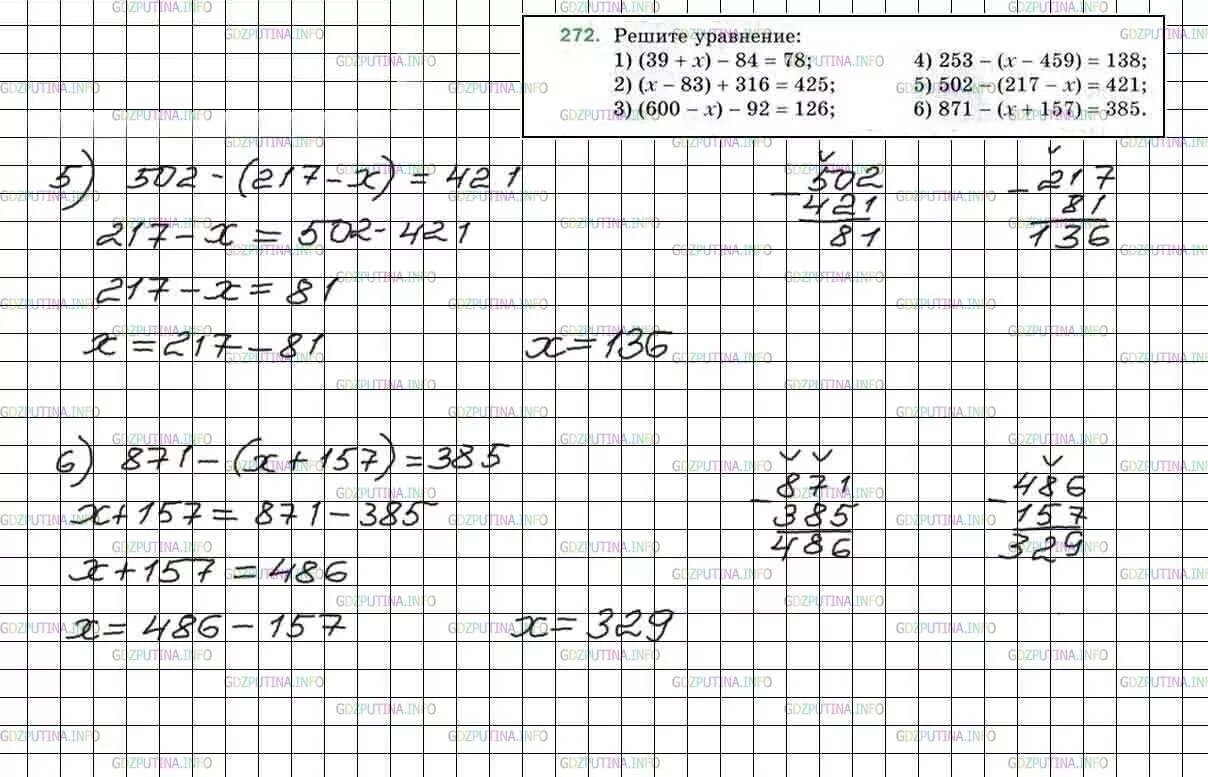 272. Решите уравнение:
1) (39 + x) − 84 = 78;
2) (x − 83) + 316 = 425;
3) (600 − x) − 92 = 126;
4) 253 − (x − 459) = 138;
5) 502 − (217 − x) = 421;
6) 871 − (x + 157) = 385.
5) 502 - (217 - x) = 421
217 - x = 502 - 421
217 - x = 81
x = 217 - 81
x = 136
- 502
421
81
- 217
81
136
6) 871 - (x + 157) = 385
x + 157 = 871 - 385
x + 157 = 486
x = 486 - 157
x = 329
- 871
385
486
- 486
157
329
GDZPUTINA.INFO